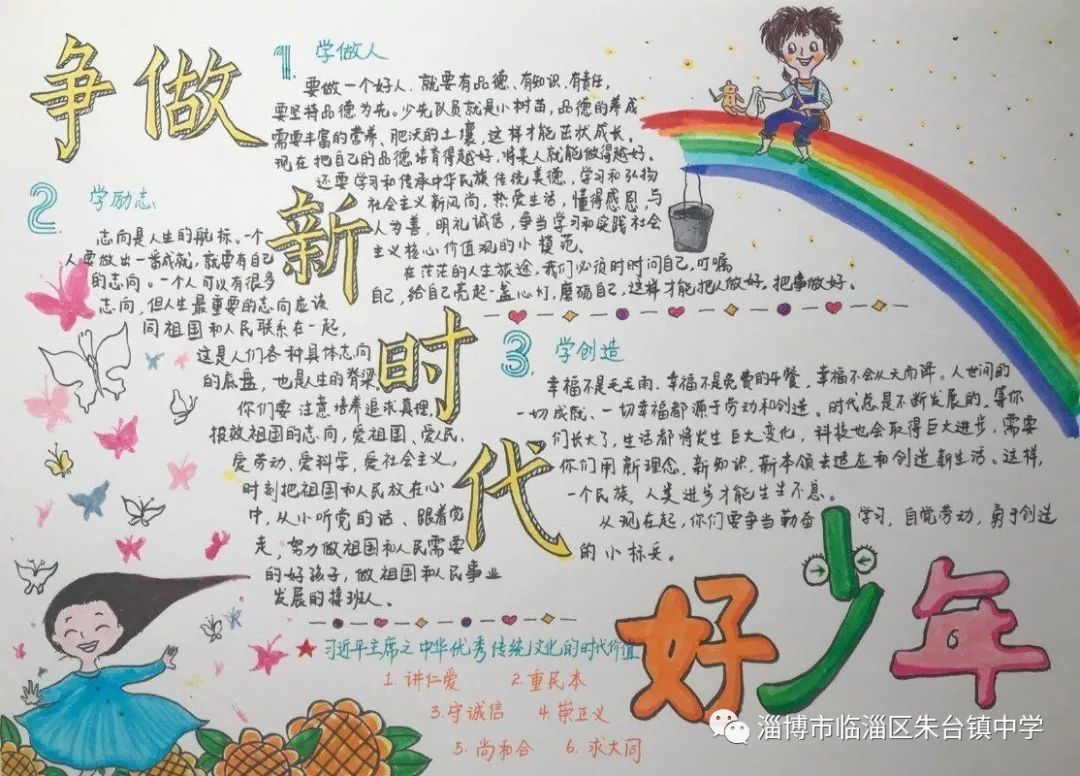 争做
新
时
代
好少年
1. 学做人
要做一个好人,就要有品德、有知识、有责任,
要坚持品德为先。少先队员就是小树苗,品德的养成
需要丰富的营养、肥沃的土壤,这样才能茁状成长、
现在把自己的品德培育得越好,将来人就能做得越好。
还要学习和传承中华民族传统美德,学习和弘扬
社会主义新风尚,热爱生活,懂得感恩,与
人为善,明礼诚信,争当学习和实践社会
主义核心价值观的小模范。
在茫茫的人生旅途,我们必须时时问自己,叮嘱
自己,给自己亮起一盏心灯,磨砺自己,这样才能把人做好,把事做好。
2 学励志
志向是人生的航标。一个
人要做出一番成就,就要有自己
的志向。一个人可以有很多
志向,但人生最重要的志向应该
同祖国和人民联系在一起,
这是人们各种具体志向
的底盘,也是人生的脊梁
你们要注意培养追求真理,
报效祖国的志向,爱祖国、爱人民、
爱劳动、爱科学,爱社会主义,
时刻把祖国和人民放在心
中,从小听党的话、跟着党
走,努力做祖国和人民需要
的好孩子,做祖国和人民事业
发展的接班人。
3 学创造
幸福不是毛毛雨、幸福不是免费的午餐,幸福不会从天而降。人世间的
一切成就、一切幸福都源于劳动和创造。时代总是不断发展的,等你
们长大了,生活都将发生巨大变化,科技也会取得巨大进步,需要
你们用新理念、新知识、新本领去适应和创造新生活。这样,
一个民族、人类进步才能生生不息。
从现在起,你们要争当勤奋学习,自觉劳动,勇于创造
的小标兵。
★习近平主席之中华优秀传统文化的时代价值
1. 讲仁爱 2. 重民本
3. 守诚信 4. 崇正义
5. 尚和合 6. 求大同
淄博市临淄区朱台镇中学